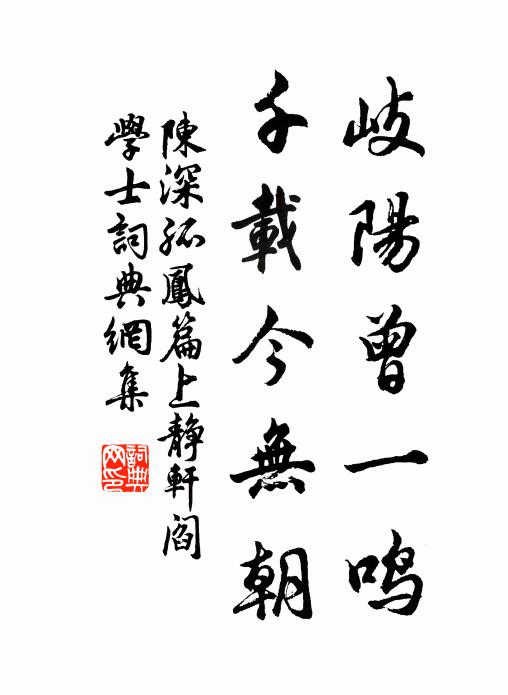 岐陽曾一鸣
千載今無朝
陳深孤鳳篇上静軒閻
學士詞典網集
詞典网印